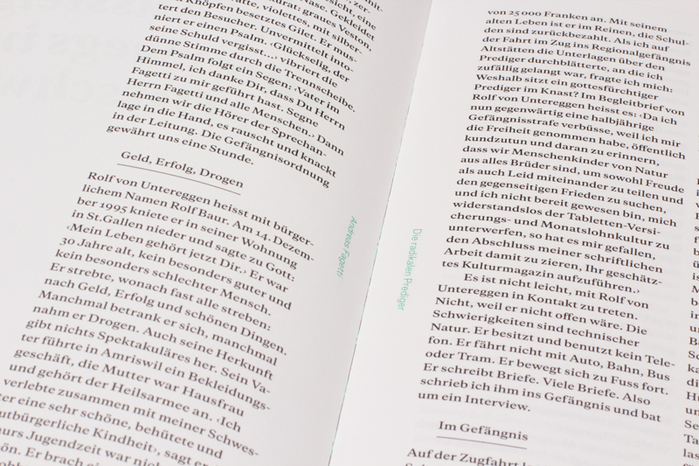 Knöpfen besetztes Gilet. Er mus-
tert den Besucher. Unvermittelt into-
niert er einen Psalm. ‹Glückselig, der
seine Schuld vergisst…› vibriert die
dünne Stimme durch die Trennscheibe.
Dem Psalm folgt ein Segen: ‹Vater im
Himmel, ich danke Dir, dass Du Herrn
Fagetti zu mir geführt hast. Segne
Herrn Fagetti und alle Menschen.› Dann
nehmen wir die Hörer der Sprechan-
lage in die Hand, es rauscht und knackt
in der Leitung. Die Gefängnisordnung
gewährt uns eine Stunde.
Geld, Erfolg, Drogen
Rolf von Untereggen heisst mit bürger-
lichem Namen Rolf Baur. Am 14. Dezem-
ber 1995 kniete er in seiner Wohnung
in St.Gallen nieder und sagte zu Gott:
‹Mein Leben gehört jetzt Dir.› Er war
30 Jahre alt, kein besonders guter und
kein besonders schlechter Mensch.
Er strebte, wonach fast alle streben:
nach Geld, Erfolg und schönen Dingen.
Manchmal betrank er sich, manchmal
nahm er Drogen. Auch seine Herkunft
gibt nichts Spektakuläres her. Sein Va-
ter führte in Amriswil ein Bekleidungs-
geschäft, die Mutter war Hausfrau
und gehört der Heilsarmee an. ‹Ich
verlebte zusammen mit meiner Schwes-
ter eine sehr schöne, behütete und
gutbürgerliche Kindheit›, sagt er.
Baurs Jugendzeit war nicht
schön. Er brach ein
Andreas Fagetti
Die radikalen Prediger
von 25 000 Franken an. Mit seinem
alten Leben ist er im Reinen, die Schul-
den sind zurückbezahlt. Als ich auf
der Fahrt im Zug ins Regionalgefängnis
Altstätten die Unterlagen über den
Prediger durchblätterte, an die ich
zufällig gelangt war, fragte ich mich:
Weshalb sitzt ein gottesfürchtiger
Prediger im Knast? Im Begleitbrief von
Rolf von Untereggen heisst es: ‹Da ich
nun gegenwärtig eine halbjährige
Gefängnisstrafe verbüsse, weil ich mir
die Freiheit genommen habe, öffentlich
kundzutun und daran zu erinnern,
dass wir Menschenkinder von Natur
aus alles Brüder sind, um sowohl Freude
als auch Leid miteinander zu teilen und
den gegenseitigen Frieden zu suchen,
und ich nicht bereit gewesen bin, mich
widerstandslos der Tabletten-Versi-
cherungs- und Monatslohnkultur zu
unterwerfen, so hat es mir gefallen,
den Abschluss meiner schriftlichen
Arbeit damit zu zieren, Ihr geschätz-
tes Kulturmagazin aufzuführen.›
Es ist nicht leicht, mit Rolf von
Untereggen in Kontakt zu treten.
Nicht, weil er nicht offen wäre. Die
Schwierigkeiten sind technischer
Natur. Er besitzt und benutzt kein Tele-
fon. Er fährt nicht mit Auto, Bahn, Bus
oder Tram. Er bewegt sich zu Fuss fort.
Er schreibt Briefe. Viele Briefe. Also
schrieb ich ihm ins Gefängnis und bat
um ein Interview.
Im Gefängnis
Auf der Zugfahrt